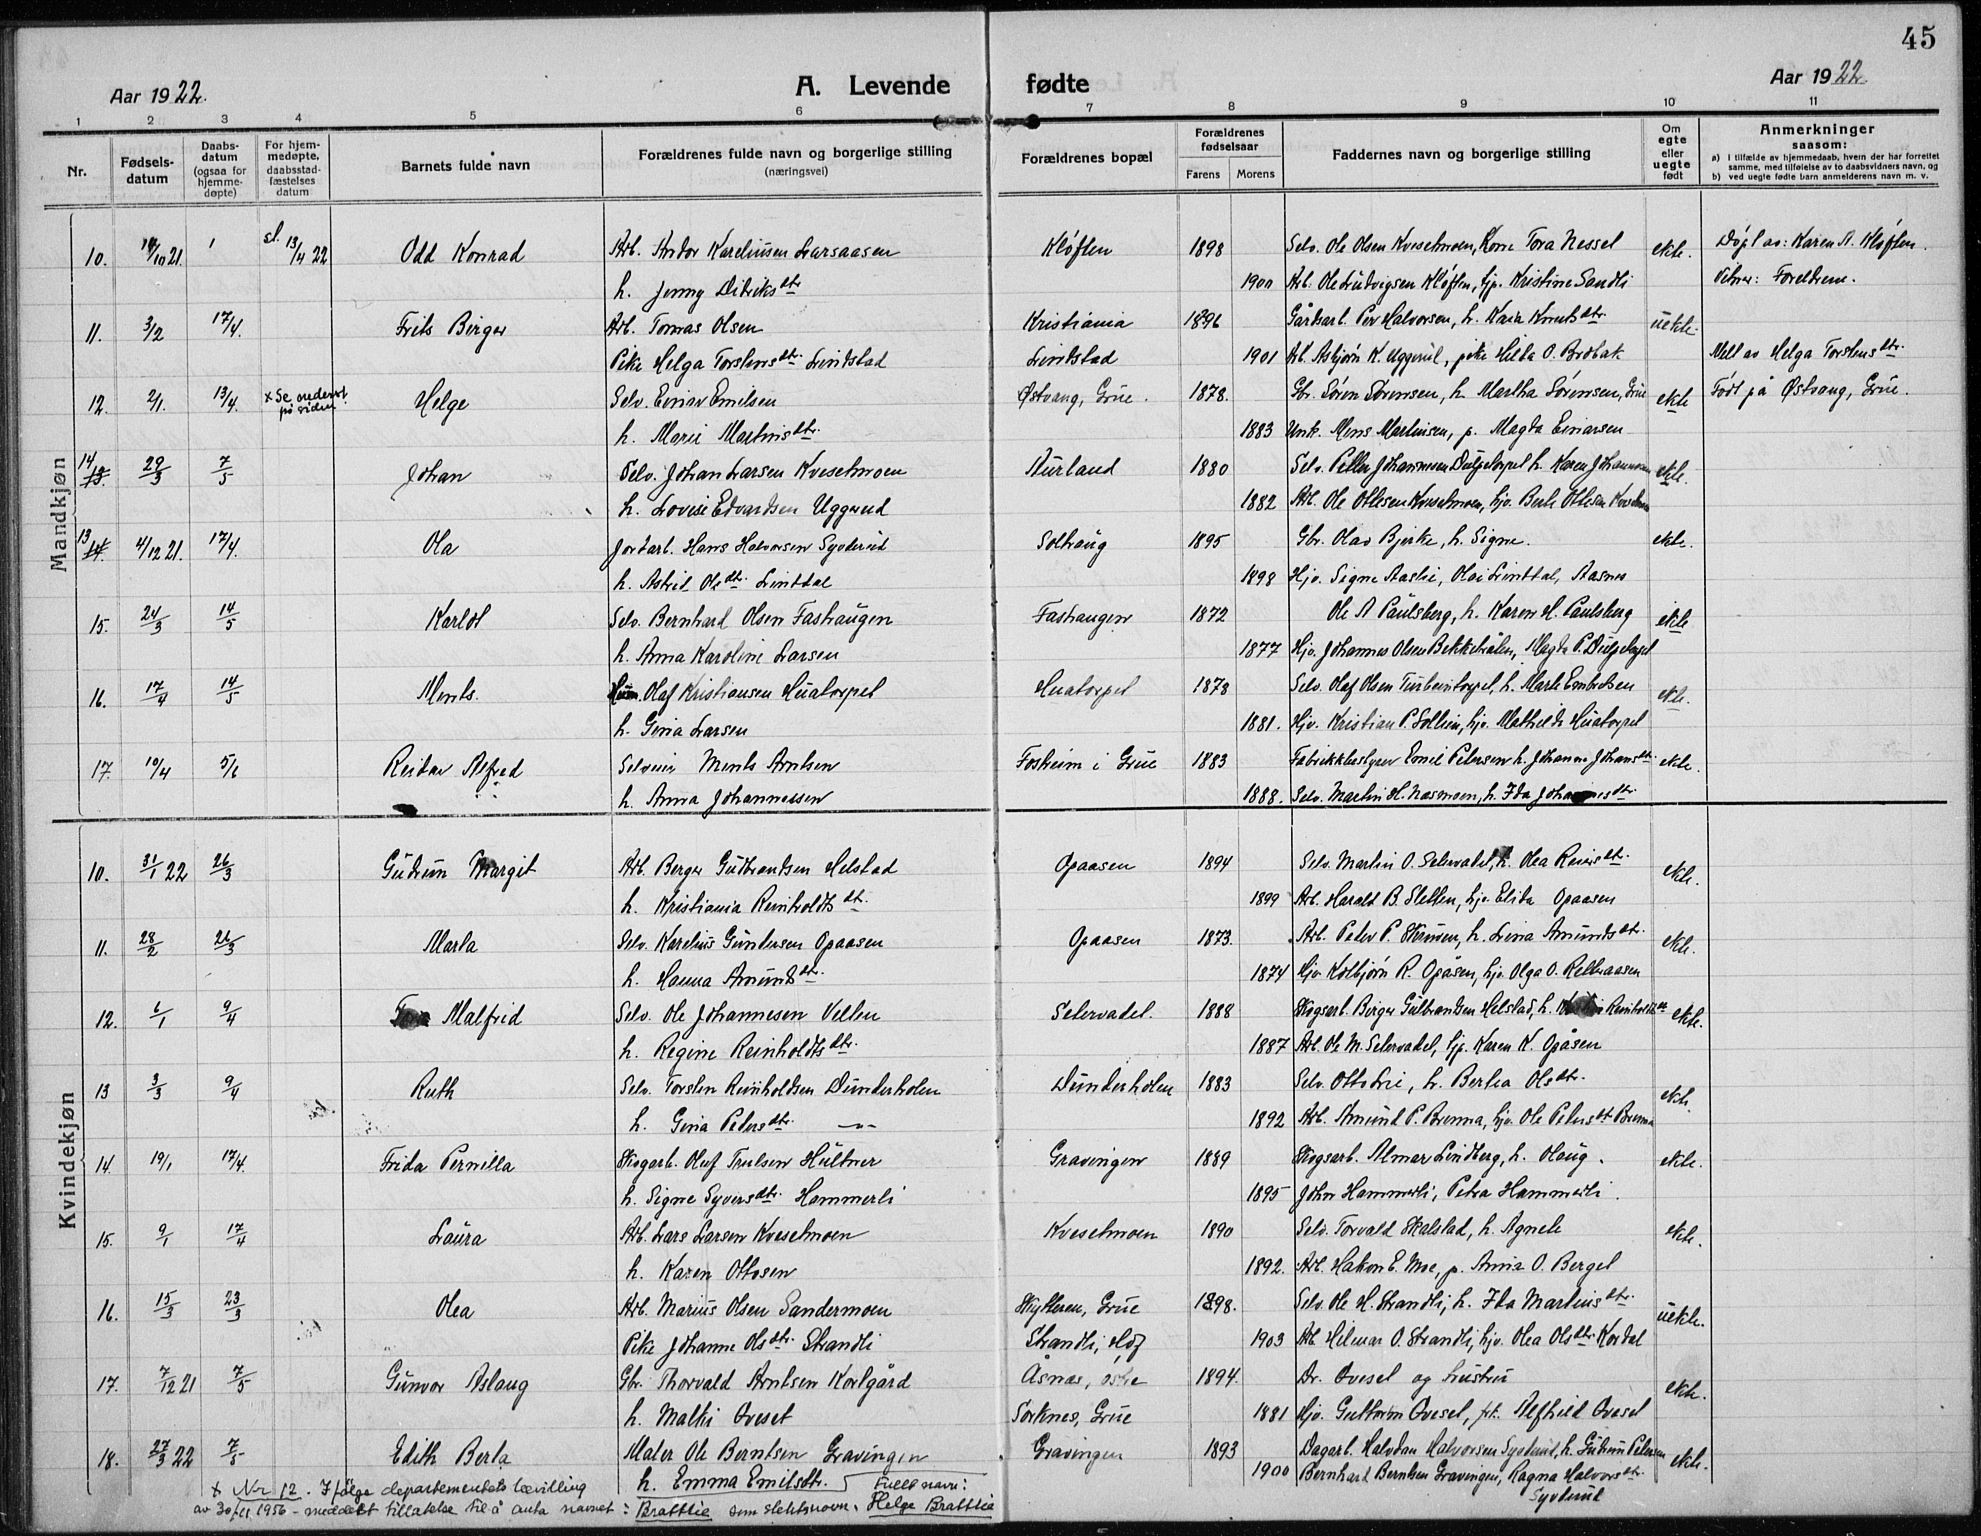 45
Aar 1922.
A. Levende fødte
Aar 1922
1 2 3 4 5 6 7 8 9 10 11
Nr.
Fødsels-datum
Daabs-datum (ogsaa for hjemme-døpte)
For hjem-medøpte, daabsstad-fæstelses datum
Barnets fulde navn
Forældrenes fulde navn og borgerlige stilling (næringsvei)
Forældrenes bopæl
Forældrenes fødselsaar
Farens Morens
Faddernes navn og borgerlige stilling
Om egte eller uegte født
Anmerkninger saasom:
a) I tilfælde av hjemmedaab, hvem der har forrettet samme, med tilføielse av to daabsvidners navn, og
b) ved uegte fødte barn anmelderens navn m. v.
Mandkjøn
10. 21. sl. 13/4 22 Odd Konrad Arb. Andor Kareliussen Larsaasen Kløften 1898 Selv. Ole Olsen Kvesetmoen, Kone Tora Nessel ekte. Døpt av: Karen A. Kløften.
h. Jenny Didriksdtr 1900 Arb. Ole Ludvigsen Kløften, hjv. Kristine Sandli Vitner: Foreldrene.
11. 3/2 17/4. Frits Birger Arb. Tomas Olsen Kristiania 1896 Gårdsarb. Per Halvorsen, h. Kaia Knutsdtr. uekte.
Pike Helga Torstensdtr. Lindstad Lindstad 1901 Arb. Asbjørn K. Uggerud, pike Helda O. Brobak Meld av Helga Torstensdtr.
12. 2/1. 13/4. x Se nederst på siden Helge Selv. Einar Emilsen Østvang, Grue. 1878. Gbr. Søren Sørensen, h. Martha Sørensen, Grue ekte Født på Østvang, Grue.
h. Marie Martinsdtr. 1883 Unk. Mens Martinsen, p. Magda Einarsen
14 13. 29/3 7/5 Johan Selv. Johan Larsen Kvesetmoen Aurland 1880 Selv. Petter Johannesen Dulpetorpet h. Karen Johannesen ekte.
h. Lovise Edvardsen Uggerud 1882 Arb. Ole Ottesen Kvesetmoen, hjv. Berte Ottesen Kvesetmoen
13 14. 4/12 21. 17/4. Ola Jordarb. Hans Halvorsen Syverud Solhaug 1895 Gbr. Olav Bjerke, h. Signe. ekte.
h. Astrid Olsdtr. Linddal 1898 Hjv. Signe Aaslie, Olai Linddal, Aasnes
15. 24/3 14/5 Karlot Selv. Bernhard Olsen Fashaugen Fashaugen 1872 Ole A Paulsberg, h. Karen M. Paulsberg ekte
h. Anna Karoline Larsen 1877 Hjv. Johannes Olsen Bekkehølen, Magda P. Dulpetorpet
16. 17/4 14/5 Ments. Olaf Kristiansen Huatorpet Huatorpet 1878 Selv. Olaf Olsen, h. Marte Embretsen ekte.
h. Gina Larsen 1881. Hjv. Kristian P. Sollien, hjv. Mathilde Huatorpet
17. 10/4 5/6 Reidar Alfred Selveier Ments Arntsen Fosheim i Grue 1883 Fabrikkbestyrer Emil Petersen h. Johanne Johansdtr. ekte.
h. Anna Johannessen 1888. Selv. Martin H. Næsmoen, h. Ida Johannesdtr.
Kvindekjøn
10. 31/1 22 26/3 Gudrun Margit Arb. Berger Gudbrandsen Helstad Opaasen 1894 Selv. Martin O. Setervadet, h. Olea Reiersdtr. ekte.
h. Kristiania Reinholdtsdt. 1899 Arb. Harald B. Sletten, hjv. Elida Opaasen
11. 28/2 26/3 Marta Selv. Karelius Gundersen Opaasen Opaasen 1873. Arb. Peder P. Skrusen, h. Lina Amundsdtr. ekte.
h. Hanna Amundsdtr. 1874 Hjv. Kolbjørn R. Opåsen, hjv. Olga O. Rettaasen
12. 6/1 9/4 Malfrid Selv. Ole Johannesen Velten Setervadet. 1888 Skogsarb. Birger Gulbrandsen Helstad, h. Reinholdtsdtr ekte.
h. Regine Reinholdtsdtr. 1887 Arb. Ole M. Setervadet, hjv. Karen K. Opåsen
13 3/3 9/4 Ruth Selv. Torsten Reinholdsen Dunderholen Dunderholen 1883 Selv. Otto Lie, h. Bertea Olsdtr. ekte.
h. Gina Pedersdtr. –"– 1892 Arb. Amund P. Brenna, hjv. Ole Pedersdt Brenna
14. 19/1 17/4. Frida Pernilla Skogarb. Oluf Trulsen Hultner Gravingen 1889 Skogsarb. Almar Lindberg, h. Olaug. ekte.
h. Signe Syversdtr. Hammerli 1895 John Hammerli, Petra Hammerli.
15. 9/1 17/4 Laura Arb. Lars Larsen Kvesetmoen Kvesetmoen 1890 Selv. Torvald Skalstad, h. Agnete ekte.
h. Karen Ottosen 1892. Arb. Håkon E. Moe, p. Anna O. Berget
16. 15/3 23/3 Olea Arb. Marius Olsen Sandermoen Skytteren, Grue 1898. Selv. Ole H. Strandli, h. Ida Martinsdtr. uekte.
Pike Johanne Olsdtr. Strandli Strandli, Hof 1903 Arb. Hilmar O. Strandli, hjv. Olea Olsdtr. Kordal
17. 7/12 21 7/5 Gunvor Aslaug Gbr. Thorvald Arntsen Kortgård Åsnes, østre 1894. Dr. Oveset og frustru ekte.
h. Mathi Oveset Sorknes, Grue 1881 Hjv. Guttorm Oveset, frk. Alfhild Oveset
18. 27/3 22 7/5 Edith Berta Maler Ole Berntsen Gravingen Gravingen 1893 Dagarb. Halvdan Halvorsen Syverud, h. Gudrun Petersen ekte.
h. Emma Emilsdtr. 1900 Bernhart Berntsen Gravingen, Ragna Halvorsdtr. Syverud
x Nr 12. Ifølge departementets bevilling
av 30/11 1956 – meddelt tillatelse til å anta navnet: Brattlie som slektsnavn. Fullt navn: Helge Brattlie